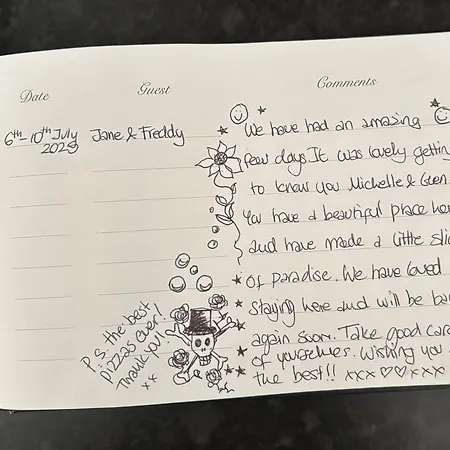 Date
Guest
Comments
6th-10th July
Jane & Freddy
We have had an amazing
few days. It was lovely getting
to know you Michelle & Glen.
You have a beautiful place
and have made a little
of paradise. We have loved
staying here and will be
again soon. Take good
of yourselves. Wishing you
the best!! xxx♡♡xxx
P.s. the best
pizzas ever!
Thank you!
xx